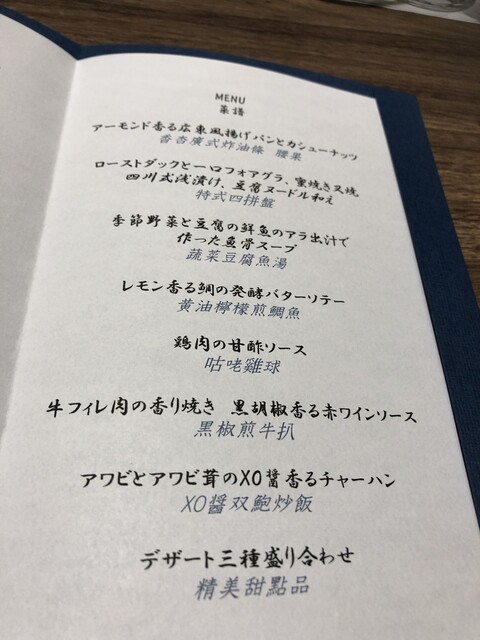 MENU
菜譜
アーモンド香る広東風揚げパンとカシューナッツ
香杏廣式炸油條 腰果
ローストダックと一口フォアグラ、蜜焼き叉焼
四川式浅漬け、豆腐ヌードル和え
特式四拼盤
季節野菜と豆腐の鮮魚のアラ出汁で
作った魚骨スープ
蔬菜豆腐魚湯
レモン香る鯛の発酵バターソテー
黄油檸檬煎鯛魚
鶏肉の甘酢ソース
咕咾雞球
牛フィレ肉の香り焼き 黒胡椒香る赤ワインソース
黑椒煎牛扒
アワビとアワビ茸のXO醤香るチャーハン
XO醬双鮑炒飯
デザート三種盛り合わせ
精美甜點品